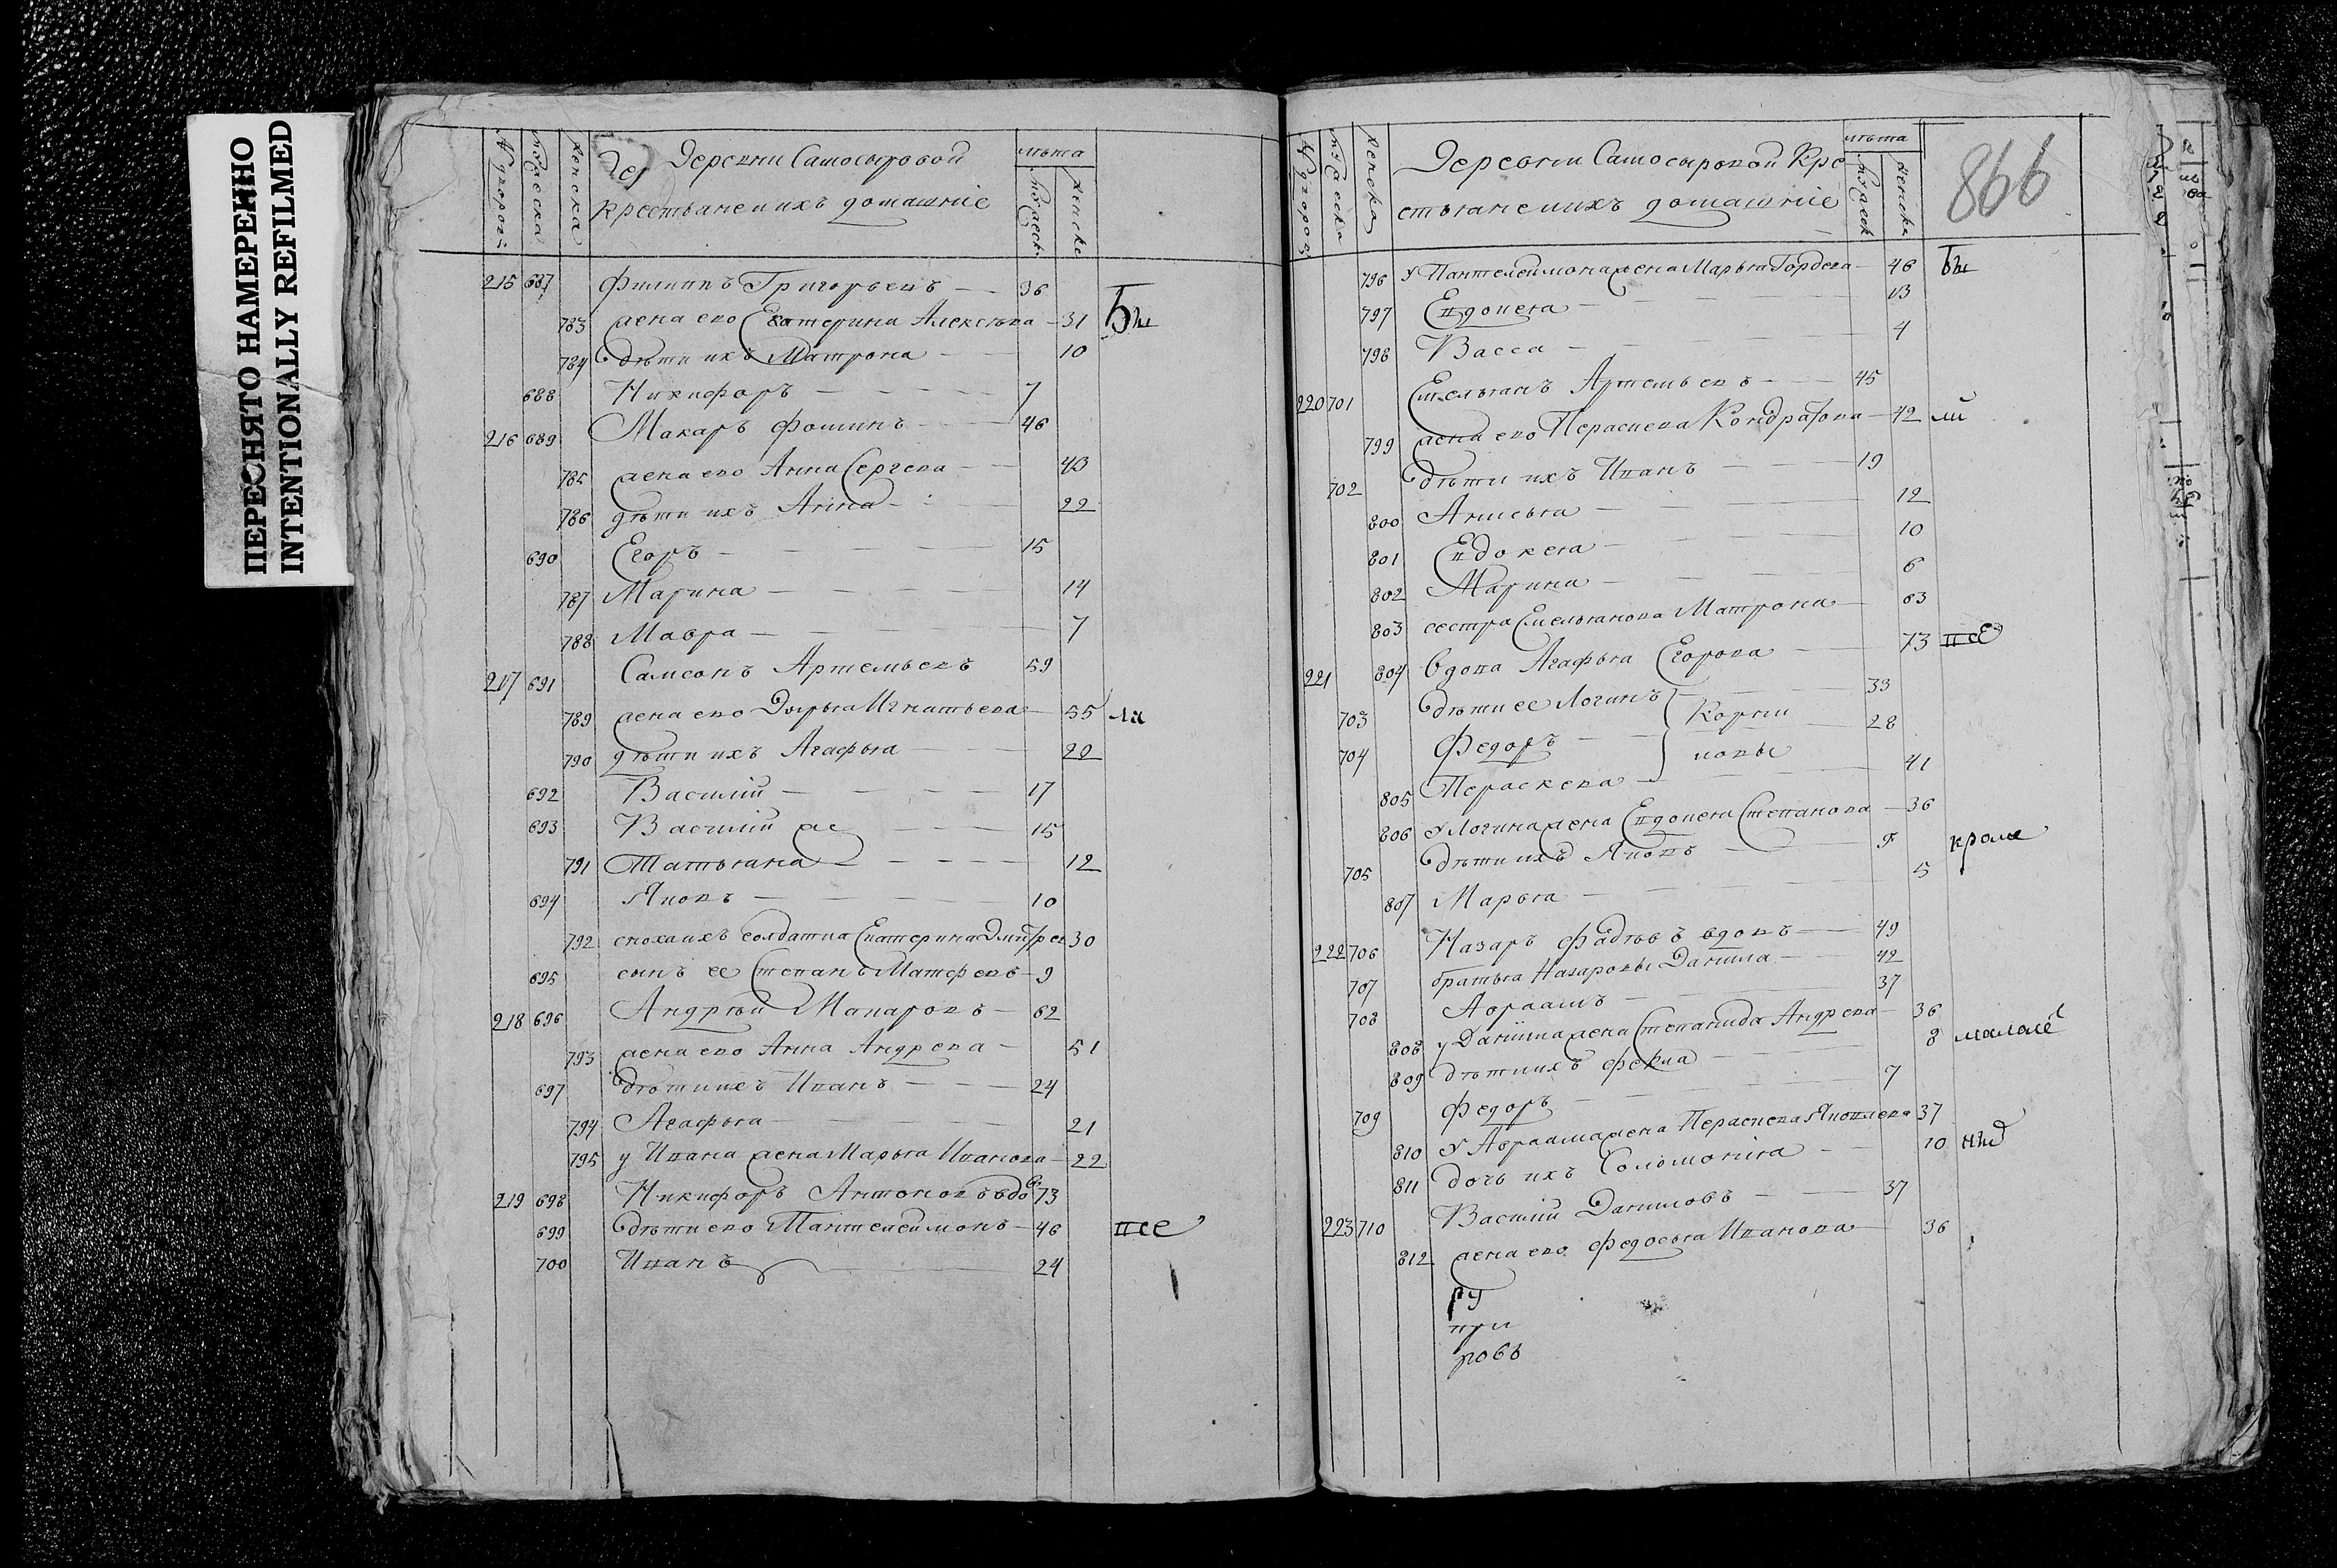 ПЕРЕСНЯТО НАМЕРЕННО
INTENTIONALLY REFILMED
№ дворовъ
мужеска
женска
Деревни Самосыровой
крестьяне и ихъ домашніе
лѣта
мужеск
женске
215 687 Филиппъ Григорьевъ — 36
783 жена ево Екатерина Алексѣва — 31
784 дѣти ихъ Матрона — 10
688 Никифоръ — 7
216 689 Макаръ Фоминъ — 46
785 жена ево Анна Сергева — 43
786 дѣти ихъ Анна — 22
690 Егоръ — 15
787 Марина — 14
788 Мавра — 7
217 691 Самсонъ Артемьевъ 59
789 жена ево Дарья Игнатьева — 55
790 дѣти ихъ Агафья — 20
692 Василій — 17
693 Василій же — 15
791 Татьяна — 12
694 Яковъ — 10
792 сноха ихъ солдатка Екатерина Дмитрев 30
695 сынъ ее Степанъ Матфевъ — 9
218 696 Андрѣй Макаровъ — 62
793 жена ево Анна Андрева — 51
697 дѣти ихъ Иванъ — 24
794 Агафья — 21
795 у Ивана жена Марья Иванова — 22
219 698 Никифоръ Антоновъ вдов 73
699 дѣти ево Пантелеймонъ — 46 все
700 Иванъ — 24
№ дворовъ
мужеска
женска
Деревни Самосыровой Кре
стьяне и ихъ домашніе
лѣта
мужеск
женске
866
796 У Пантелеймона жена Марья Гордева — 46
797 Евдокея — 13
798 Васса — 4
220 701 Емельянъ Артемьевъ — 45
799 жена ево Пераскева Кондратова — 42 ли
702 дѣти ихъ Иванъ — 19
800 Анисья — 12
801 Евдокея — 10
802 Марина — 6
803 сестра Емельянова Матрона — 63
221 804 вдова Агафья Егорова — 73 все
703 дѣти ее Логинъ — 33
Корни
704 Федоръ — 28
ловы
805 Пераскева — 41
806 У Логина жена Евдокея Степанова — 36
705 дѣти ихъ Яковъ — 9 кроме
807 Марья — 5
222 706 Назаръ Фадѣевъ вдовъ — 49
707 братья Назаровы Данила — 42
708 Авраамъ — 37
808 у Данила жена Степанида Андрева — 36
809 дѣти ихъ Фекла — 8 малале
709 Федоръ — 7
810 У Авраама жена Пераскева Яковлева 37
811 дочь ихъ Соломонія — 10
223 710 Василій Даниловъ — 37
812 жена ево Федосья Иванова — 36
ру
при
ровъ